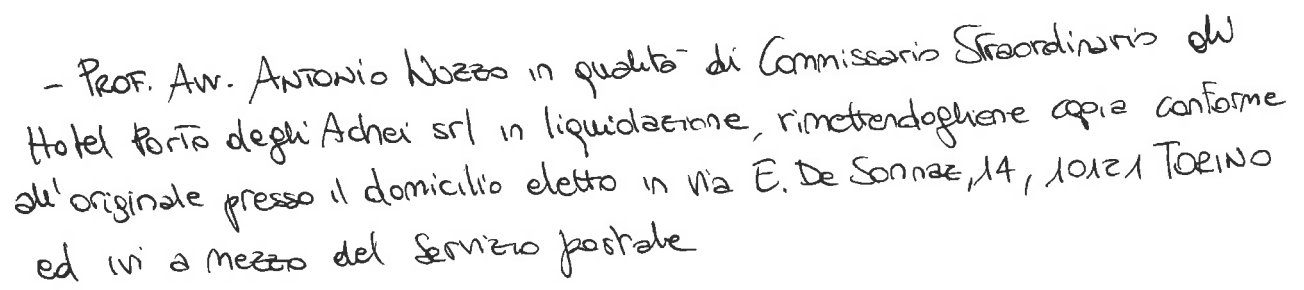 - PROF. AVV. ANTONIO NUZZO in qualità di Commissario Straordinario di
Hotel Porto degli Achei srl in liquidazione, rimettendogliene copia conforme
all'originale presso il domicilio eletto in via E. De Sonnaz, 14, 10121 TORINO
ed ivi a mezzo del servizio postale